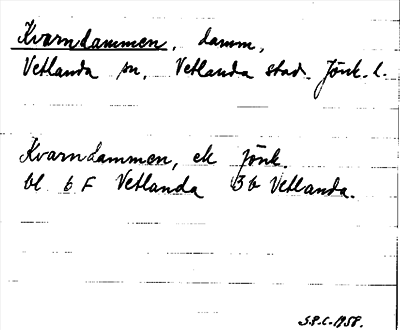 Kvarndammen, damm,
Vetlanda sn, Vetlanda stad. Jönk. l.
Kvarndammen, ek Jönk.
bl 6 F Vetlanda 3b Vetlanda.
S.P.C. 1958.